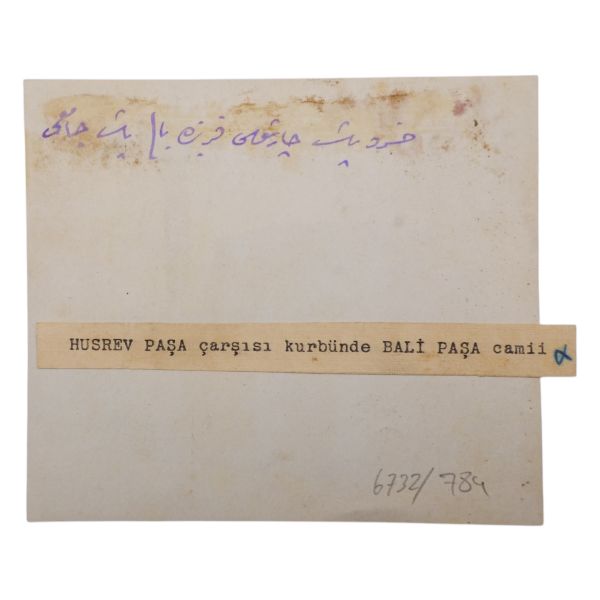 خسرو پاشا چارشوسی قربنده بالی پاشا جامعی
HUSREV PAŞA çarşısı kurbünde BALİ PAŞA camii
6732/784